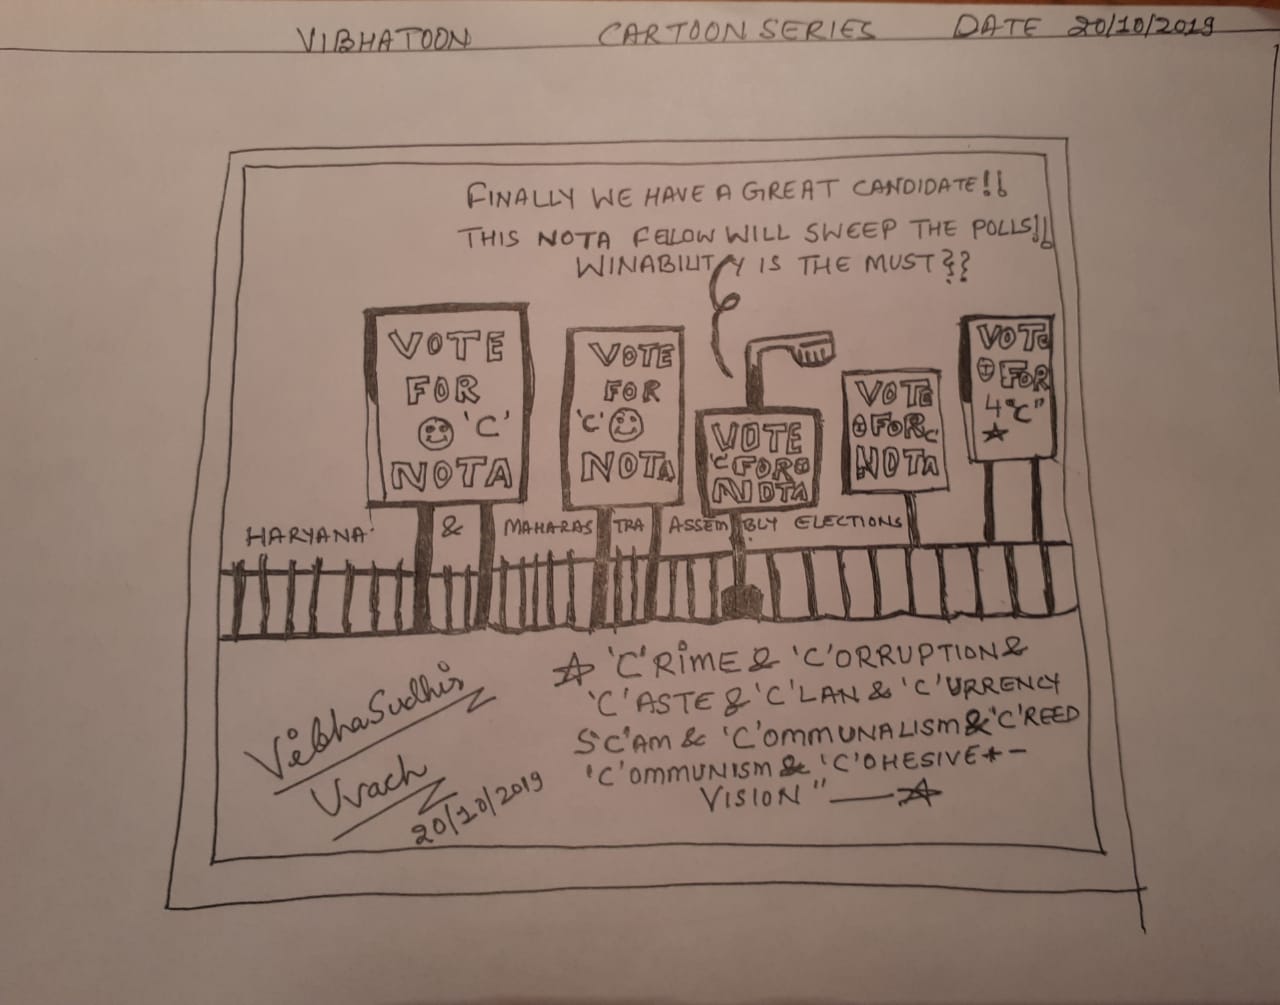 VIBHATOON CARTOON SERIES DATE 20/10/2019
FINALLY WE HAVE A GREAT CANDIDATE!!
THIS NOTA FELOW WILL SWEEP THE POLLS!!
WINABILITY IS THE MUST??
VOTE
FOR
'C'
NOTA
VOTE
FOR
'C'
NOTA
VOTE
'C' FOR
NOTA
VOTE
FOR C
NOTA
VOTE
FOR
4 "C"
HARYANA & MAHARASTRA ASSEMBLY ELECTIONS
'C'RIME & 'C'ORRUPTION &
'C'ASTE & 'C'LAN & 'C'URRENCY
S'C'AM & 'C'OMMUNALISM & 'C'REED
'C'OMMUNISM & 'C'OHESIVE + -
VISION" —
VibhaSudhir
Vrach
20/10/2019